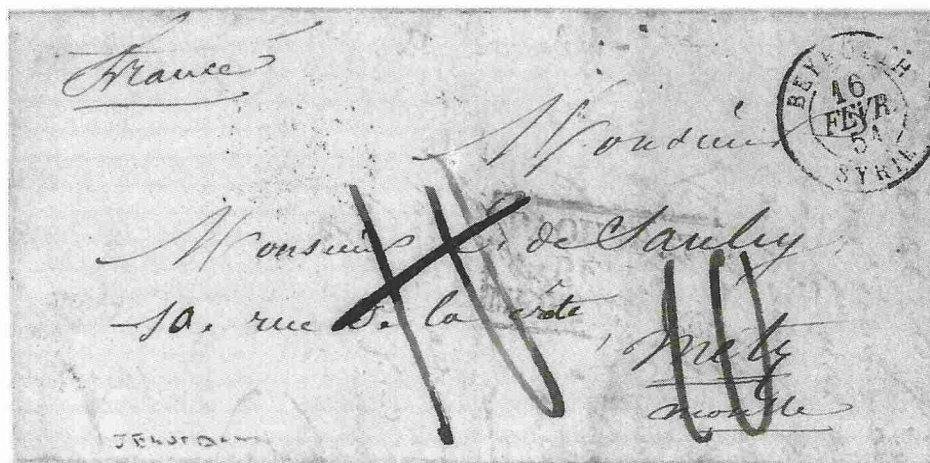 France
BEYROUTH
16
FEVR.
51
SYRIE
Monsieur
Monsieur C. de Saulcy
10. rue De la
Metz
moselle
10